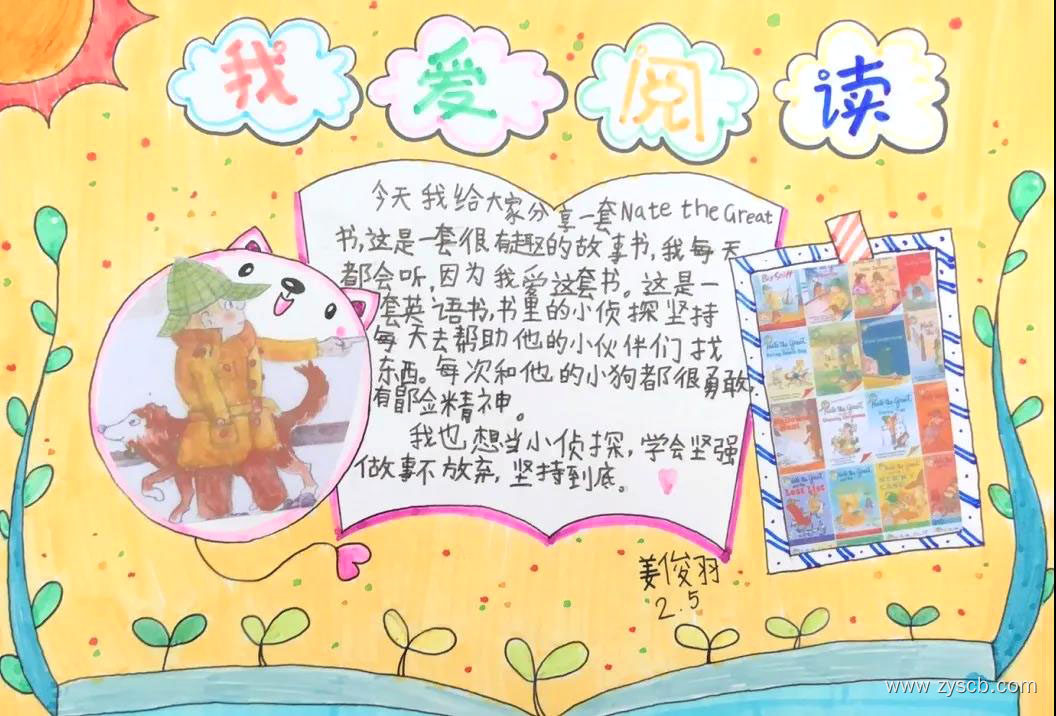 我爱阅读
今天我给大家分享一套Nate the Great
书,这是一套很有趣的故事书,我每天
都会听,因为我爱这套书。这是一
套英语书,书里的小侦探坚持
每天去帮助他的小伙伴们找
东西。每次和他的小狗都很勇敢,
有冒险精神。
我也想当小侦探,学会坚强
做事不放弃,坚持到底。
姜俊羽
2.5
Big Sniff
Nate the Great
Nate the Great
Nate the Great
Nate the Great
Nate the Great
Lost List
www.zyscb.com